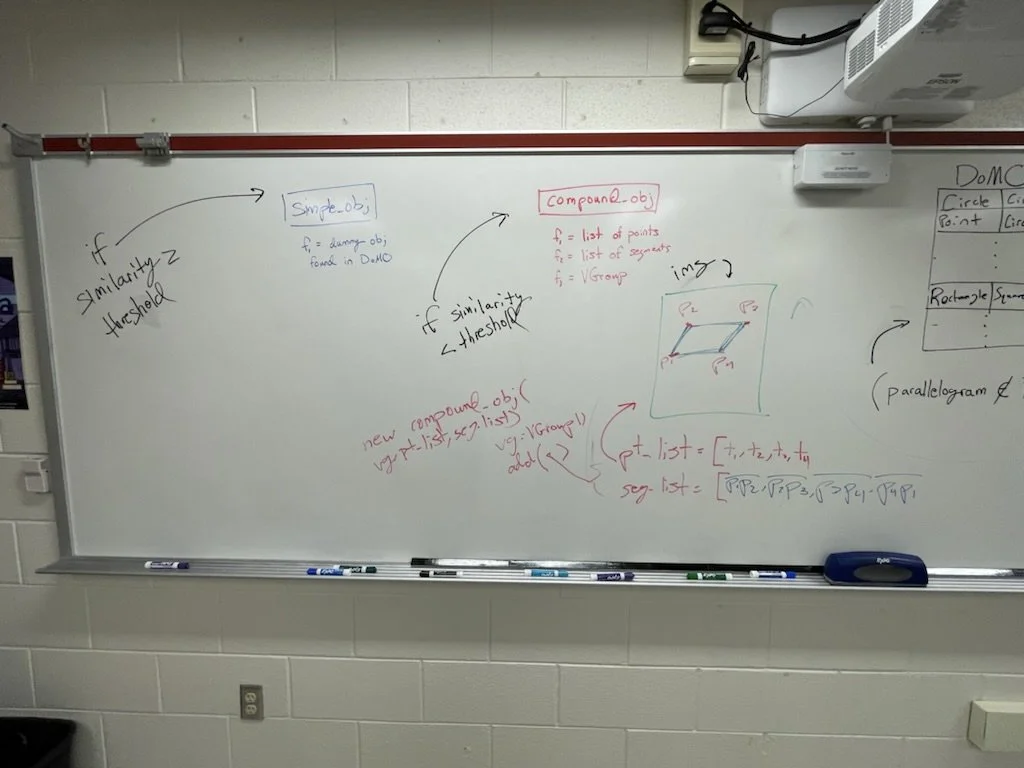 EPSON
if
similarity ≥
threshold
Simple_obj
f₁ = dummy obj
found in DoMO
if similarity
< threshold
compound_obj
f₁ = list of points
f₂ = list of segments
f₃ = VGroup
img
P2
P3
P1
P4
new compound_obj(
vg, pt-list, seg.list)
vg = VGroup()
add(
pt_list = [t₁, t₂, t₃, t₄
seg-list = [P1P2, P2P3, P3P4, P4P1
DoMO
Circle
Point
Rectangle
(parallelogram ∉